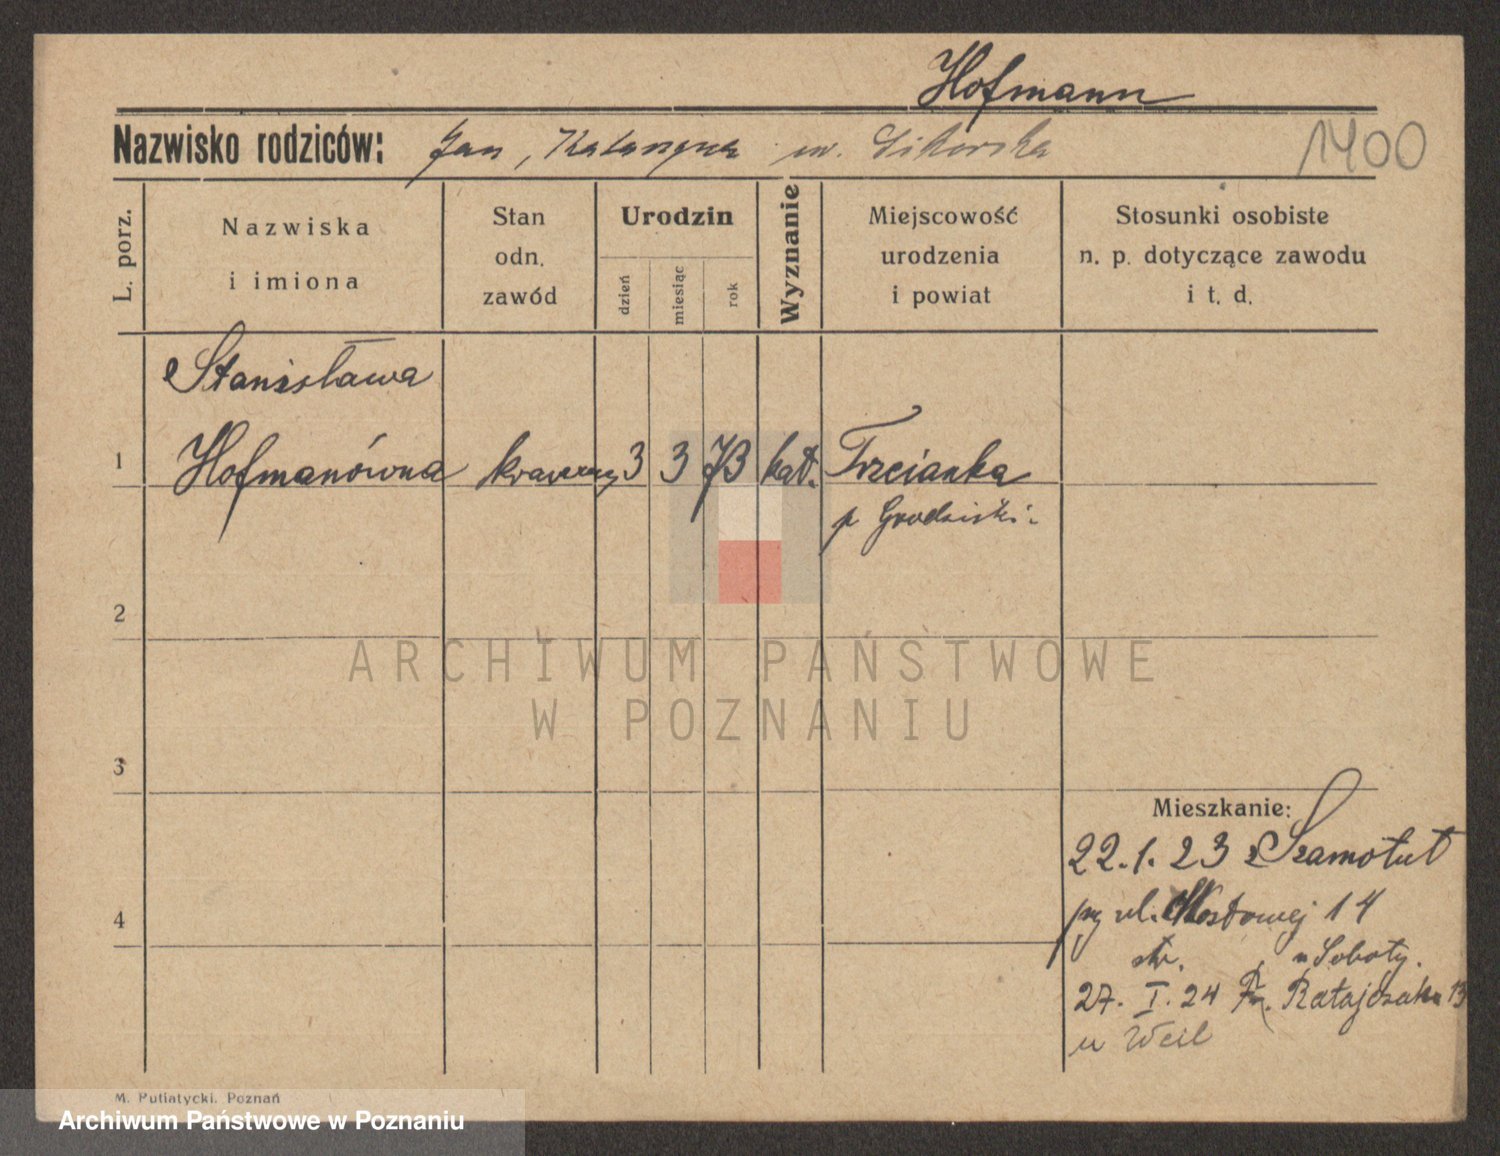 Hofmann
Nazwisko rodziców: Jan, Katarzyna ur. Sikorska
1400
L. porz.
Nazwiska
i imiona
Stan
odn.
zawód
Urodzin
dzień
miesiąc
rok
Wyznanie
Miejscowość
urodzenia
i powiat
Stosunki osobiste
n. p. dotyczące zawodu
i t. d.
Stanisława
1 Hofmanówna krawczyni 3 3 73 kat. Trzcianka
p Grodziski.
2
ARCHIWUM PAŃSTWOWE
W POZNANIU
3
Mieszkanie:
22.1.23 z Szamotuł
przy ul. Mostowej 14
4
u Soboty.
27. I. 24 Fr. Ratajczaka 13
u Weil
M. Putiatycki. Poznań
Archiwum Państwowe w Poznaniu